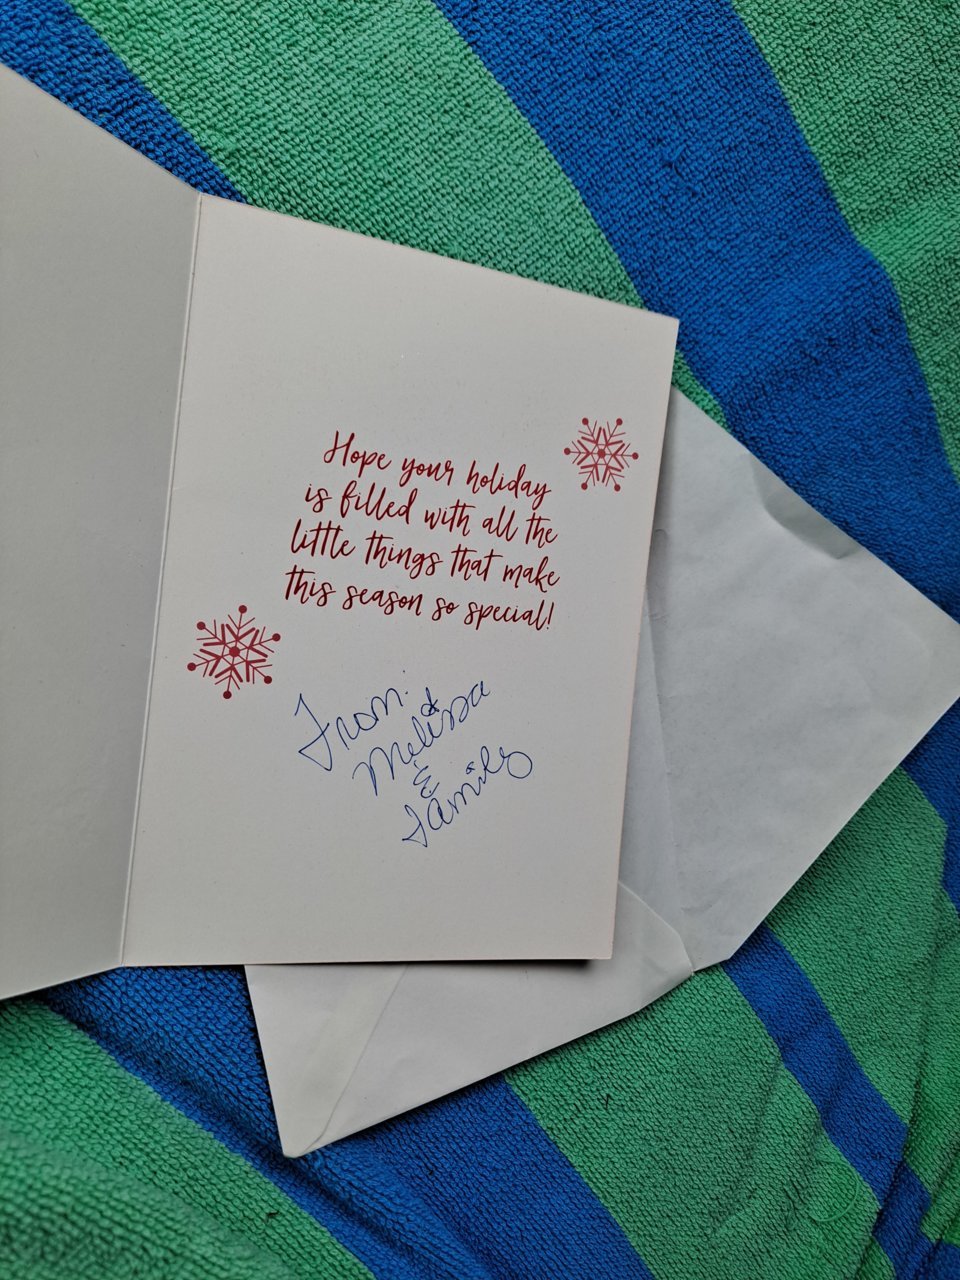 Hope your holiday
is filled with all the
little things that make
this season so special!
From:
Melissa
&
Family